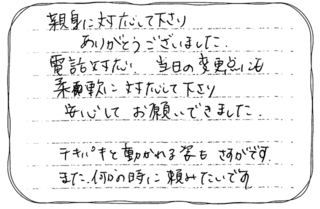 親身に対応して下さり
ありがとうございました.
電話対応 当日の変更点にも
柔軟に対応して下さり
安心して お願いできました.
テキパキと動かれる姿も さすがです.
また.何かの時に頼みたいです